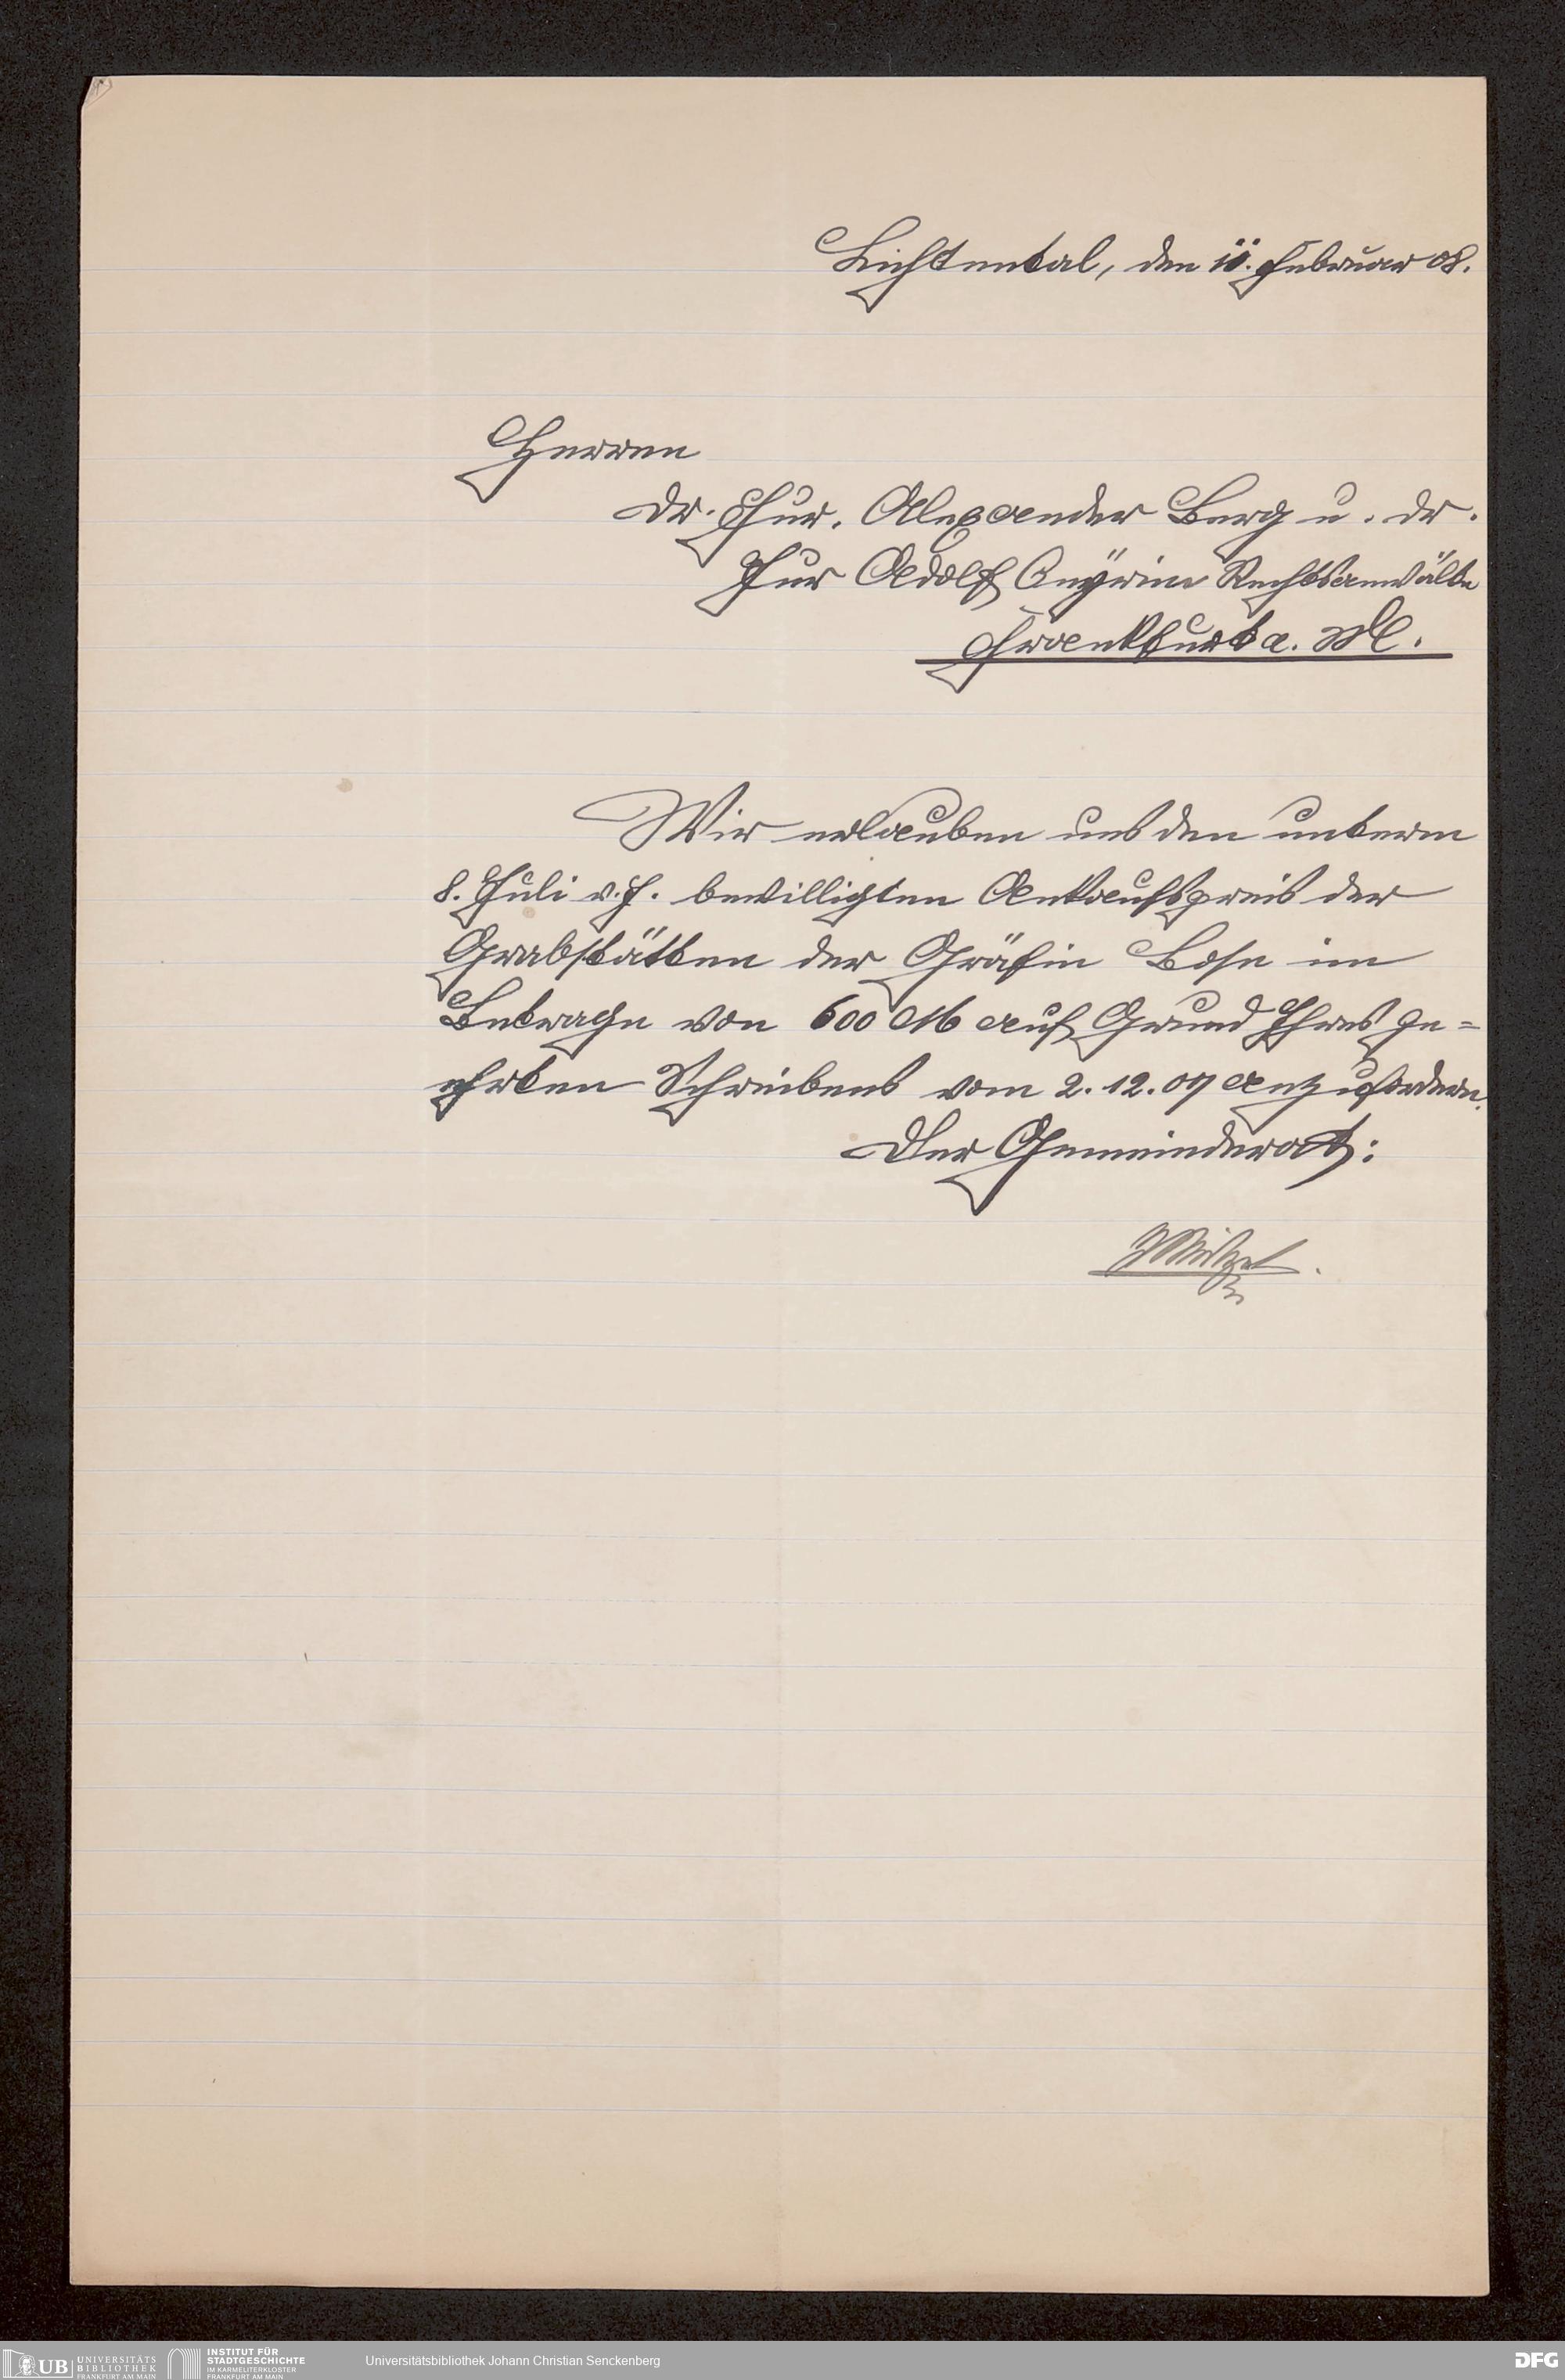 Lichtental, den 10. Februar 08.
Herren
Dr. Jur. Alexander Berg u. Dr.
Jur Adolf Rechtsanwälte
Frankfurt a. M.
Wir erlauben uns den unterm
8. Juli v. J. bewilligten Ankaufspreis der
Grabstätten der Gräfin Bose im
Betrage von 600 M auf Grund Ihres ge=
ehrten Schreibens vom 2. 12. 07 anzufordern.
Der Gemeinderat:
UB UNIVERSITÄTS
BIBLIOTHEK
FRANKFURT AM MAIN
INSTITUT FÜR
STADTGESCHICHTE
IM KARMELITERKLOSTER
FRANKFURT AM MAIN
Universitätsbibliothek Johann Christian Senckenberg
DFG